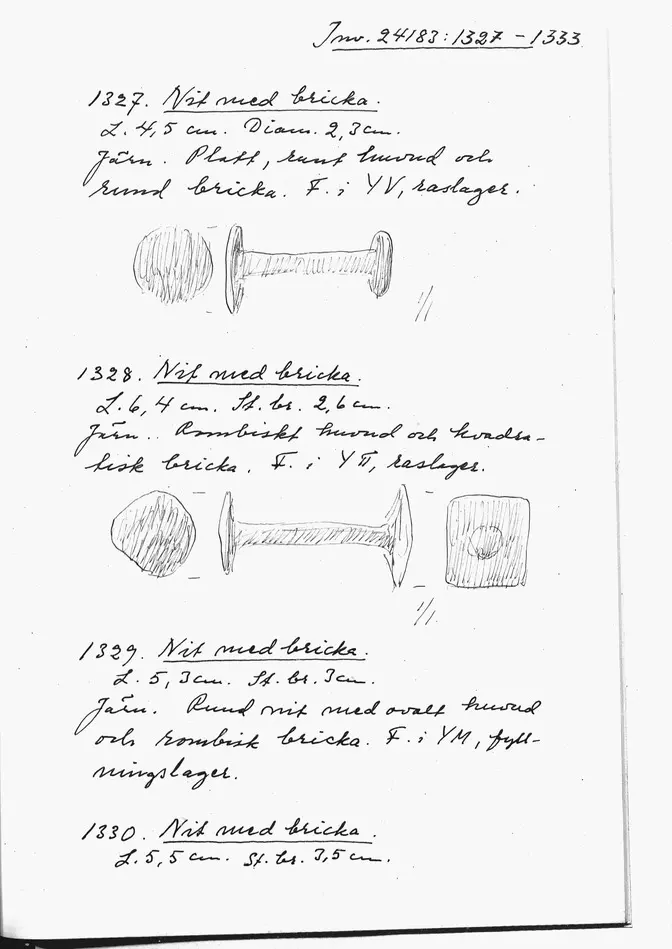 Inv. 24183:1327 - 1333
1327. Nit med bricka.
L. 4,5 cm. Diam. 2,3 cm.
Järn. Platt, runt huvud och
rund bricka. F. i YV, raslager.
1/1
1328. Nit med bricka.
L. 6,4 cm. St. br. 2,6 cm.
Järn.. Rombiskt huvud och kvadra-
tisk bricka. F. i YTT, raslager.
1/1
1329. Nit med bricka.
L. 5,3 cm. St. br. 3 cm.
Järn. Rund nit med ovalt huvud
och rombisk bricka. F. i YM, fyll-
ningslager.
1330. Nit med bricka.
L. 5,5 cm. St. br. 3,5 cm.